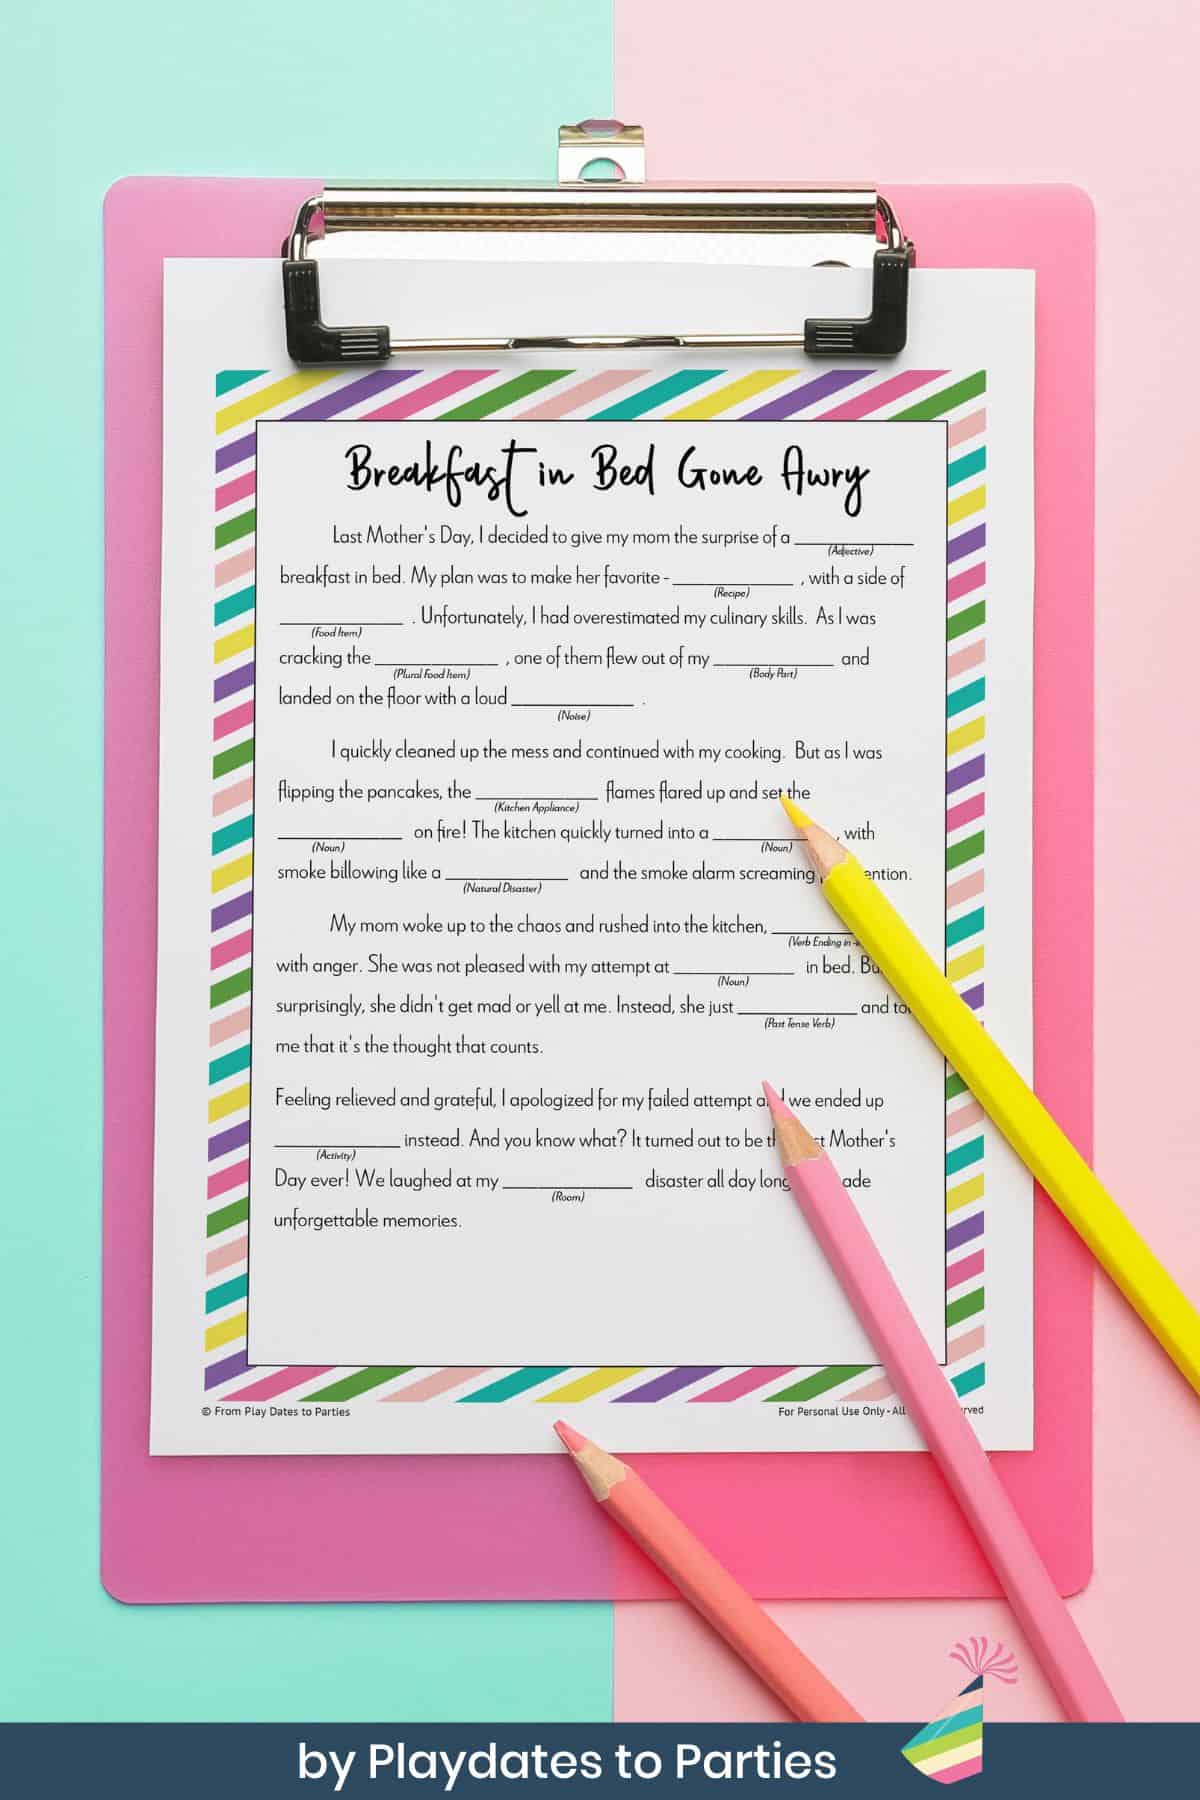 Breakfast in Bed Gone Awry
Last Mother's Day, I decided to give my mom the surprise of a ____________
(Adjective)
breakfast in bed. My plan was to make her favorite - ____________ , with a side of
(Recipe)
____________ . Unfortunately, I had overestimated my culinary skills. As I was
(Food Item)
cracking the ____________ , one of them flew out of my ____________ and
(Plural Food Item) (Body Part)
landed on the floor with a loud ____________ .
(Noise)
I quickly cleaned up the mess and continued with my cooking. But as I was
flipping the pancakes, the ____________ flames flared up and set the
(Kitchen Appliance)
____________ on fire! The kitchen quickly turned into a ____________ , with
(Noun) (Noun)
smoke billowing like a ____________ and the smoke alarm screaming
(Natural Disaster)
My mom woke up to the chaos and rushed into the kitchen, ____________
(Verb Ending in
with anger. She was not pleased with my attempt at ____________ in bed.
(Noun)
surprisingly, she didn't get mad or yell at me. Instead, she just ____________ and
(Past Tense Verb)
me that it's the thought that counts.
Feeling relieved and grateful, I apologized for my failed attempt we ended up
____________ instead. And you know what? It turned out to be Mother's
(Activity)
Day ever! We laughed at my ____________ disaster all day long
(Room)
unforgettable memories.
© From Play Dates to Parties
For Personal Use Only - All
by Playdates to Parties